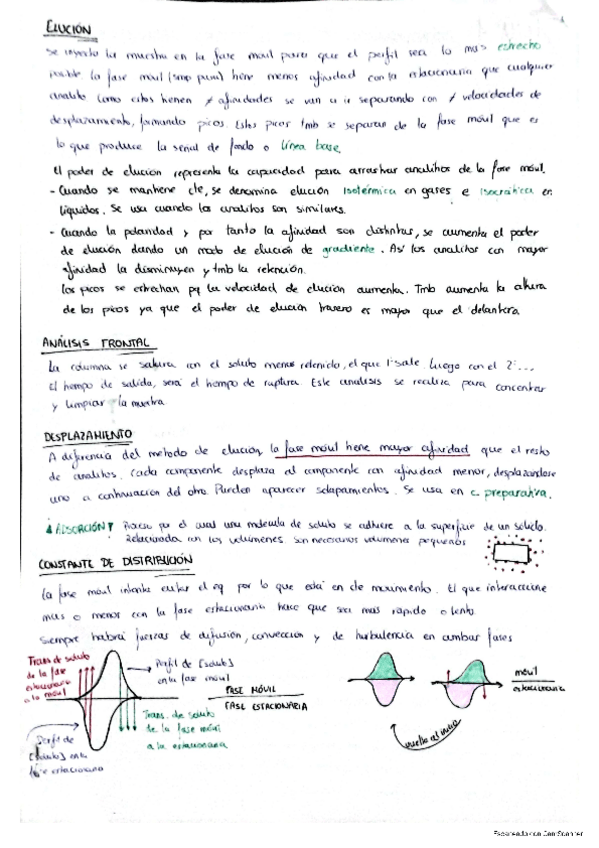 ELUCIÓN
Se inyecta la muestra en la fase móvil para que el perfil sea lo más estrecho
posible. La fase móvil (smp pura) tiene menos afinidad con la estacionaria que cualquier
analito. Como estos tienen ≠ afinidades se van a ir separando con ≠ velocidades de
desplazamiento, formando picos. Estos picos tmb se separan de la fase móvil que es
lo que produce la señal de fondo o línea base.
El poder de elución representa la capacidad para arrastrar analitos de la fase móvil.
- Cuando se mantiene cte, se denomina elución isotérmica en gases e isocrática en
líquidos. Se usa cuando los analitos son similares.
- Cuando la polaridad y por tanto la afinidad son distintas, se aumenta el poder
de elución dando un modo de elución de gradiente. Así los analitos con mayor
afinidad la disminuyen y tmb la retención.
Los picos se estrechan pq la velocidad de elución aumenta. Tmb aumenta la altura
de los picos ya que el poder de elución trasero es mayor que el delantera.
ANÁLISIS FRONTAL
La columna se satura con el soluto menos retenido, el que 1º sale. Luego con el 2º...
El tiempo de salida, será el tiempo de ruptura. Este analisis se realiza para concentrar
y limpiar la muestra.
DESPLAZAMIENTO
A diferencia del metodo de elución, la fase móvil tiene mayor afinidad que el resto
de analitos. Cada componente desplaza al componente con afinidad menor, desplazandose
uno a continuación del otro. Pueden aparecer solapamientos. Se usa en c. preparativa.
ADSORCIÓN Proceso por el cual una molecula de soluto se adhiere a la superficie de un solido.
Relacionada con los volumenes. Son necesarios volumenes pequeños
CONSTANTE DE DISTRIBUCIÓN
La fase movil intenta evitar el eq por lo que está en cte movimiento. El que interaccione
más o menos con la fase estacionaria hace que sea mas rapido o lento.
Siempre habrá fuerzas de difusión, convección y de turbulencia en ambas fases
Trans. de soluto
de la fase
estacionaria
a la móvil
Perfil de [soluto]
en la fase movil
FASE MÓVIL
FASE ESTACIONARIA
Trans. de soluto
de la fase móvil
a la estacionaria
Perfil de
[soluto] en la
fase estacionaria
móvil
estacionaria
vuelta al inicio
Escaneado con CamScanner